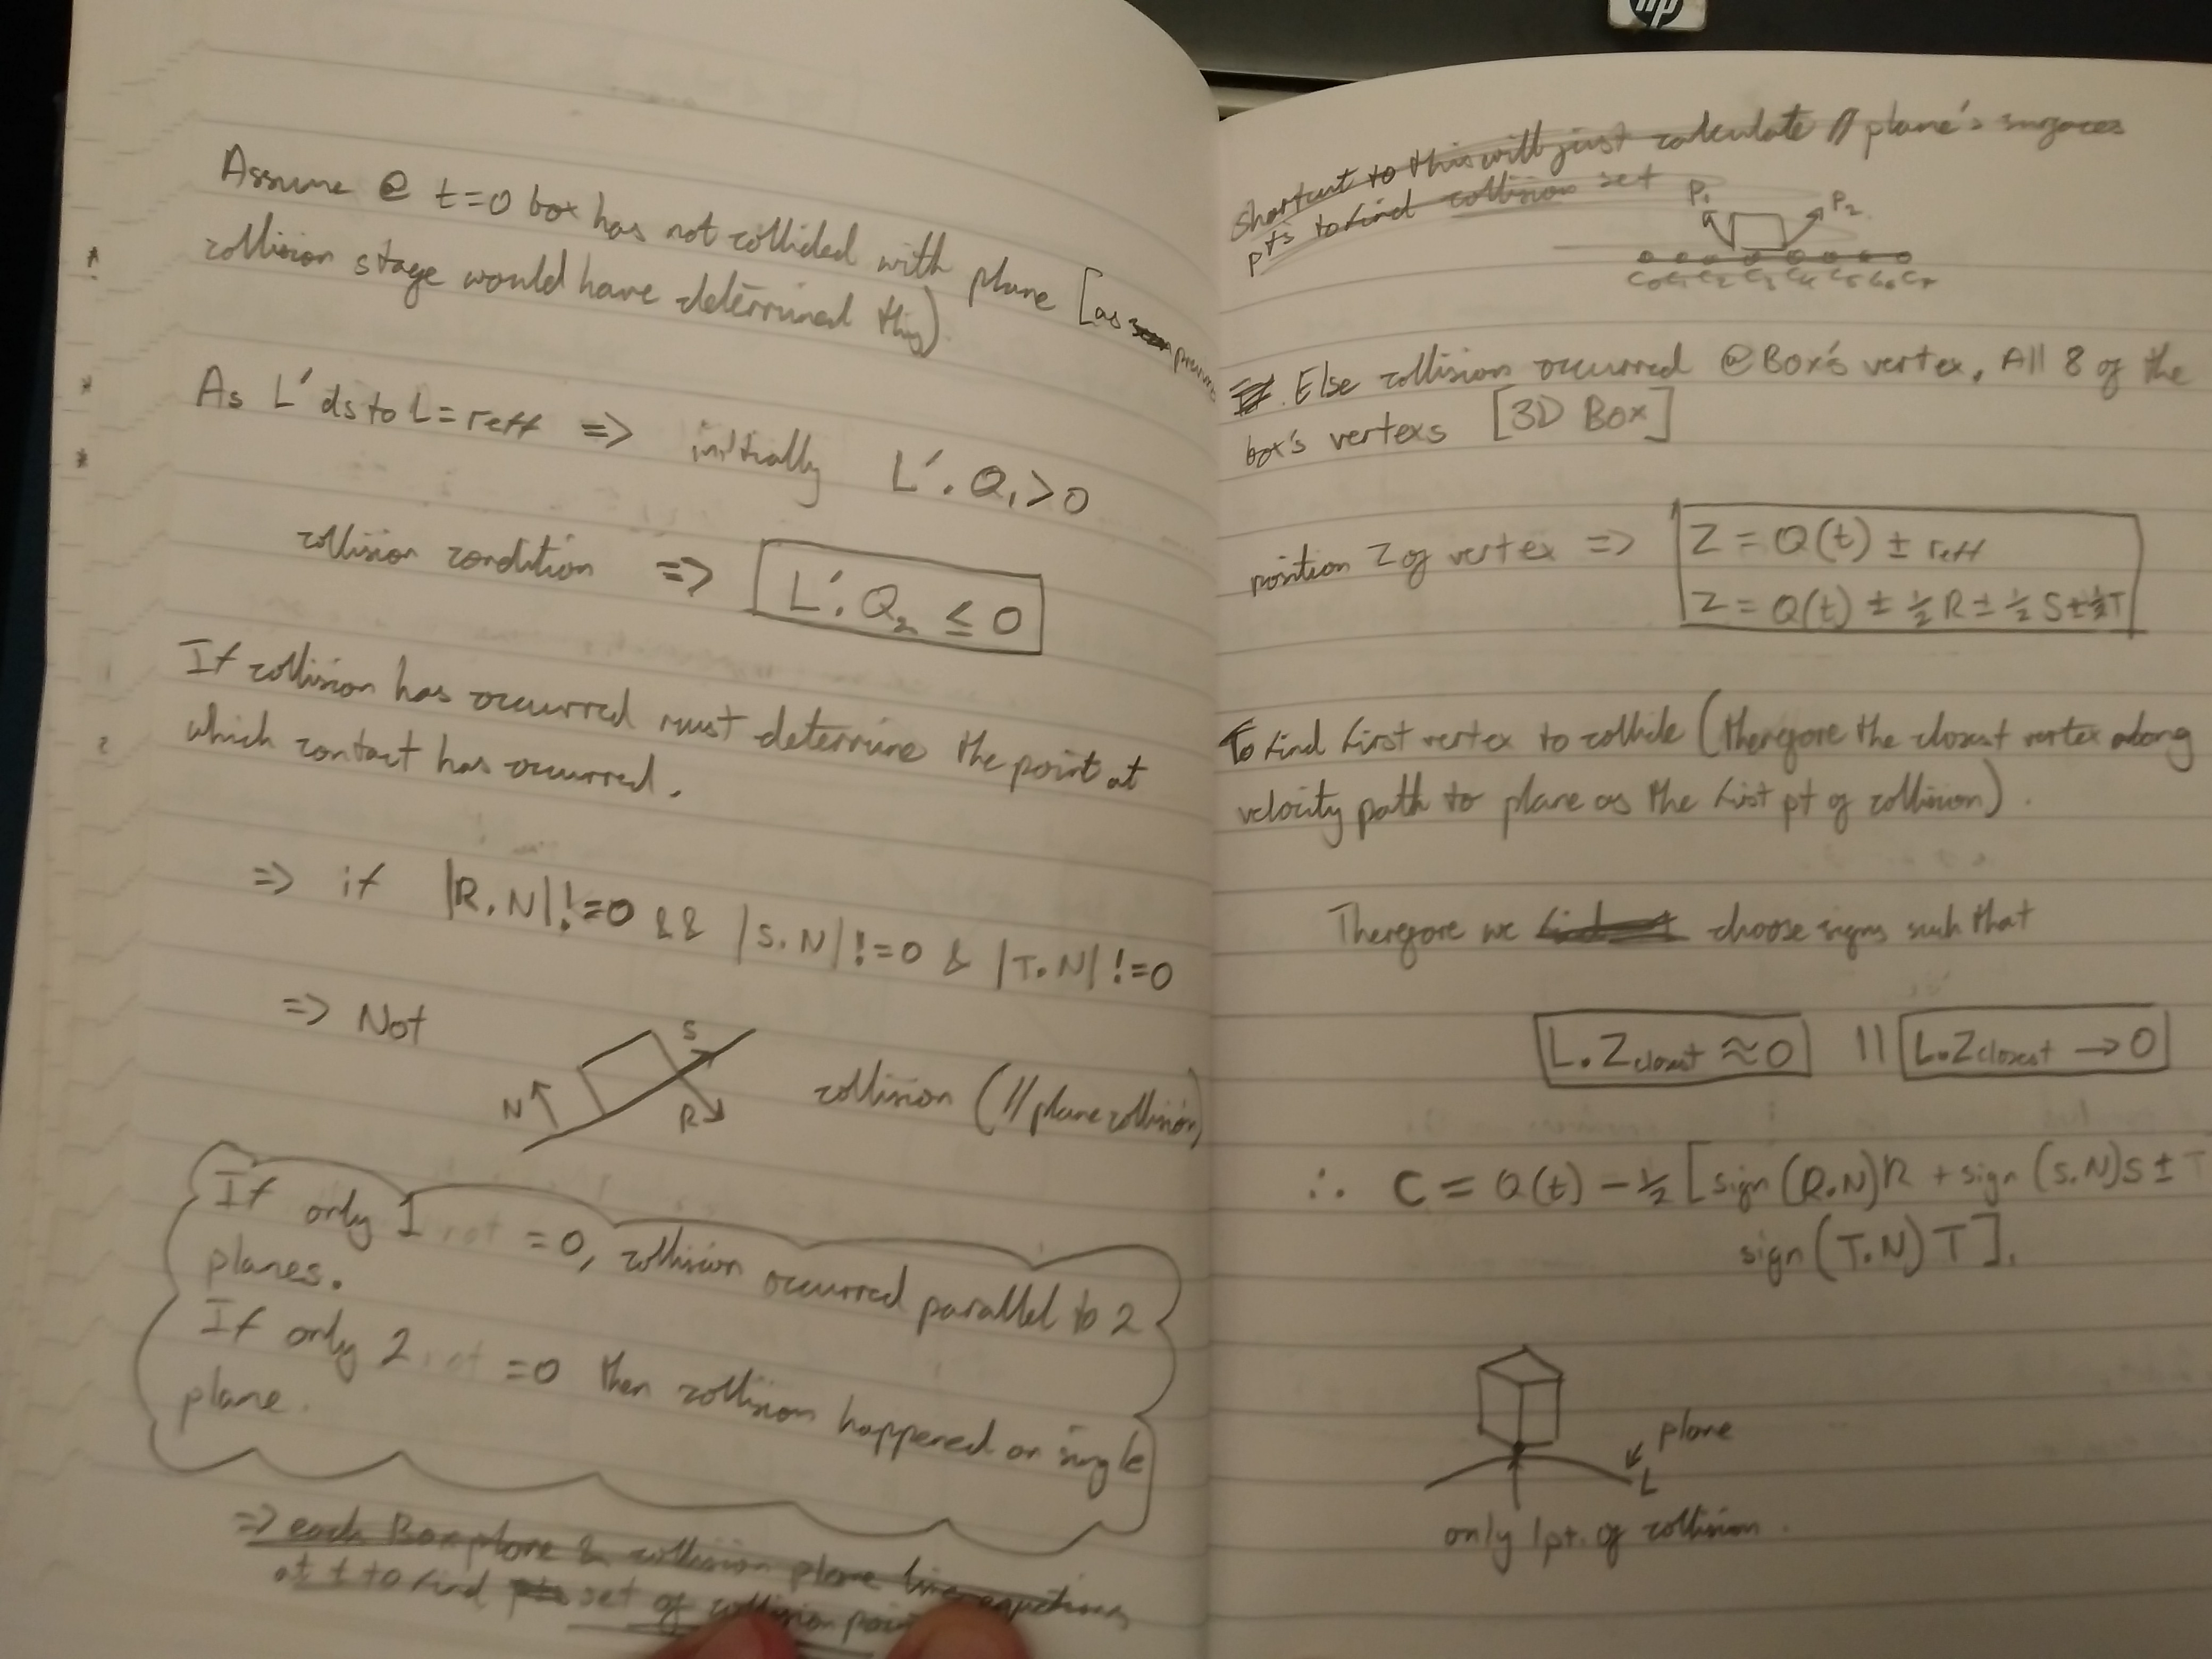 hp
Assume @ t=0 box has not collided with plane [as previous
collision stage would have determined this)
As L' ds to L = reff => initially L'. Q₁ > 0
collision condition => L'. Q₂ ≤ 0
If collision has occurred must determine the point at
which contact has occurred.
=> if |R.N| != 0 && |S.N| != 0 & |T.N| != 0
=> Not
N
S
R
collision (// plane collision)
If only 1 not = 0, collision occurred parallel to 2
planes.
If only 2 not = 0 then collision happened on single
plane.
=> each Box plane & collision plane line equations
at t to find pts set of collision
Shortcut to this will just calculate // plane's surfaces
pts to find collision set
P₁ P₂
C₀ C₁ C₂ C₃ C₄ C₅ C₆ C₇
If Else collision occurred @ Box's vertex, All 8 of the
box's vertexs [3D Box]
position Z of vertex => Z = Q(t) ± reff
Z = Q(t) ± ½ R ± ½ S ± ½ T
To find first vertex to collide (therefore the closest vertex along
velocity path to plane as the first pt of collision).
Therefore we choose signs such that
L.Zclosest ≈ 0 || L.Zclosest → 0
∴ C = Q(t) - ½ [sign (R.N)R + sign (S.N)S ± T
sign (T.N) T].
plane
L
only 1 pt. of collision.